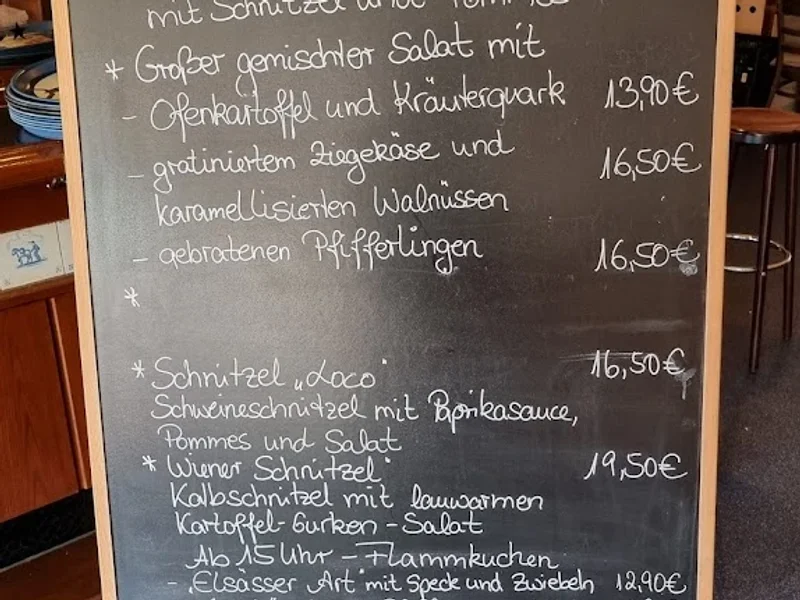 mit Schnitzel und Pommes
* Großer gemischter Salat mit
- Ofenkartoffel und Kräuterquark 13,90€
- gratiniertem Ziegekäse und 16,50€
karamellisierten Walnüssen
- gebratenen Pfifferlingen 16,50€
*
* Schnitzel „Loco" 16,50€
Schweineschnitzel mit Paprikasauce,
Pommes und Salat
* Wiener Schnitzel" 19,50€
Kalbschnitzel mit lauwarmen
Kartoffel-Gurken-Salat
Ab 15 Uhr - Flammkuchen
- „Elsässer Art" mit Speck und Zwiebeln 12,90€